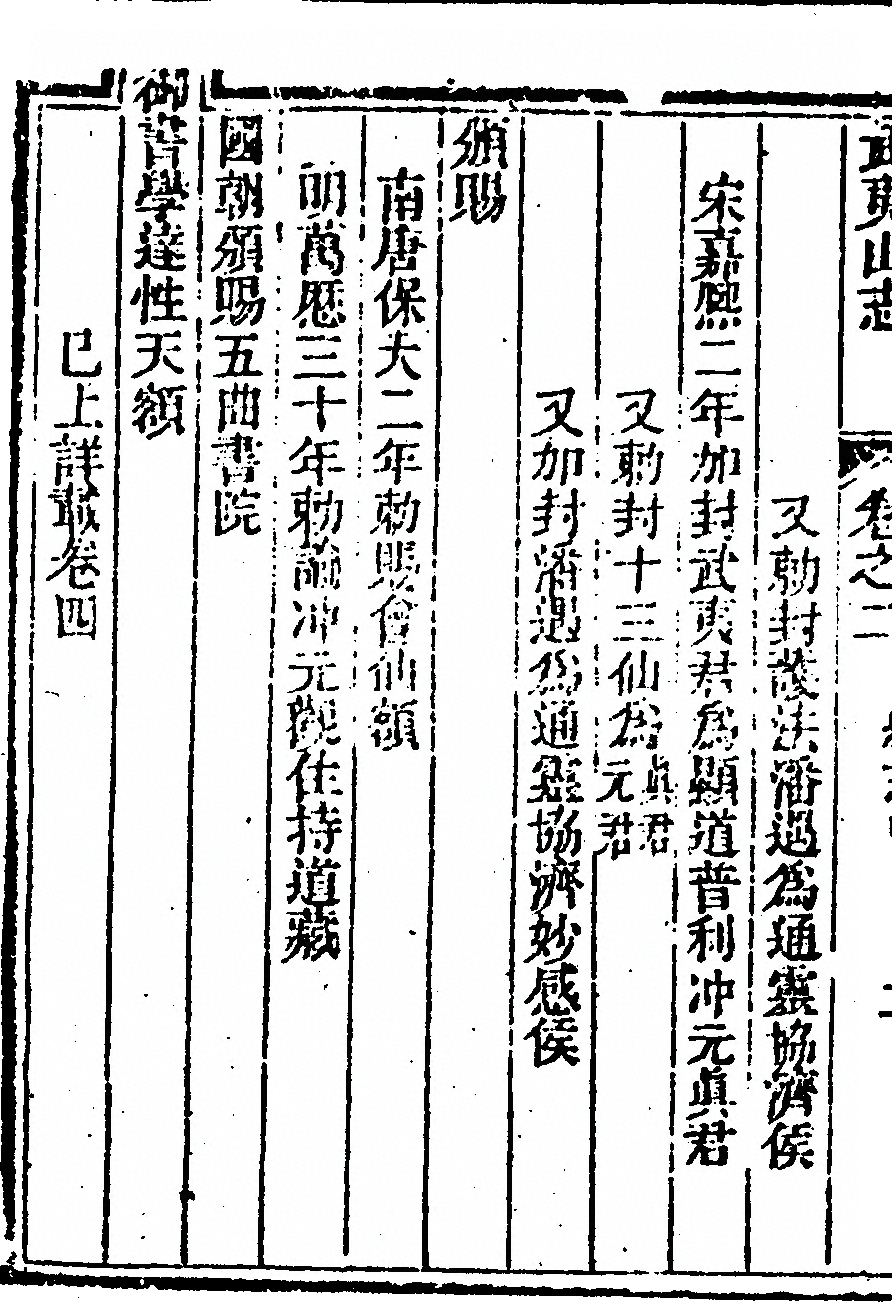 武夷山志 卷之二
又勅封護法潘遇爲通靈協濟侯
宋嘉熙二年加封武夷君爲顯道普利冲元眞君
又勅封十三仙爲眞君元君
又加封潘遇爲通靈協濟妙感侯
頒賜
南唐保大二年勅賜會仙額
明萬歷三十年勅諭冲元觀住持道藏
國朝頒賜五曲書院
御書學達性天額
已上詳載卷四